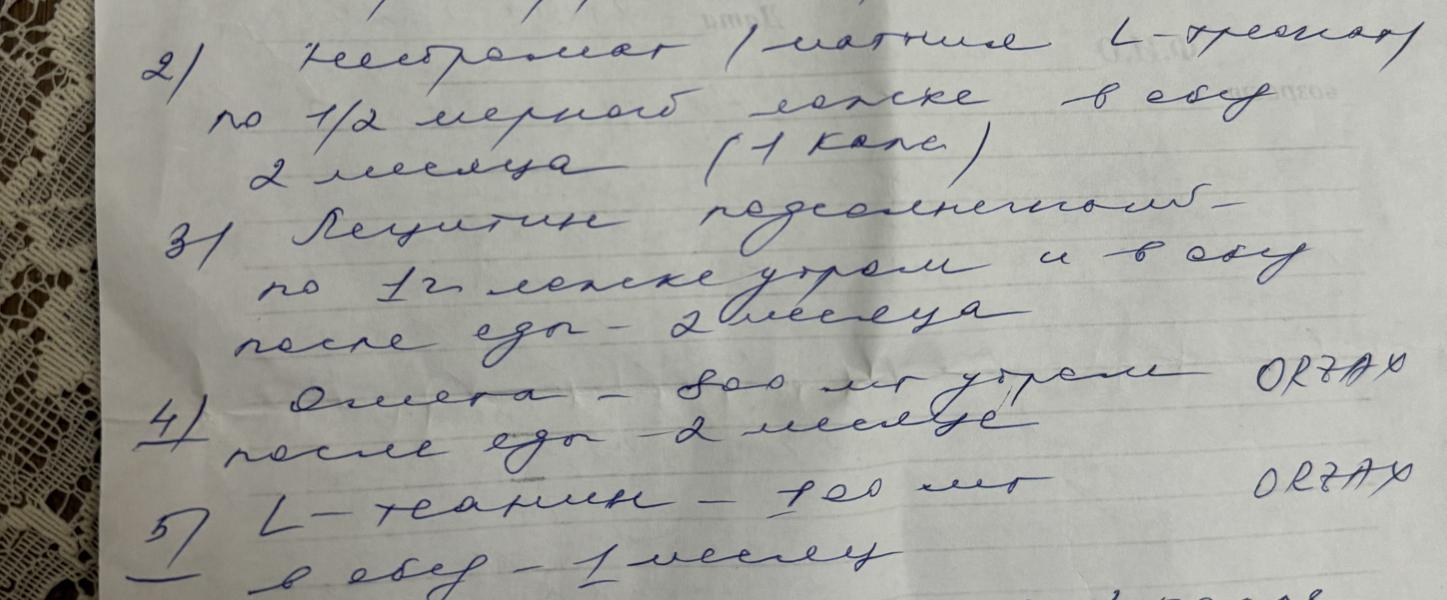 2) (магния L-треонат)
по 1/2 мерной ложке в обед
2 месяца (1 капс.)
3) Лецитин подсолнечный -
по 1 ч. ложке утром и в обед
после еды - 2 месяца
4) Омега - 800 мг утром ORZAX
после еды - 2 месяца
5) L-теанин - 100 мг ORZAX
в обед - 1 месяц